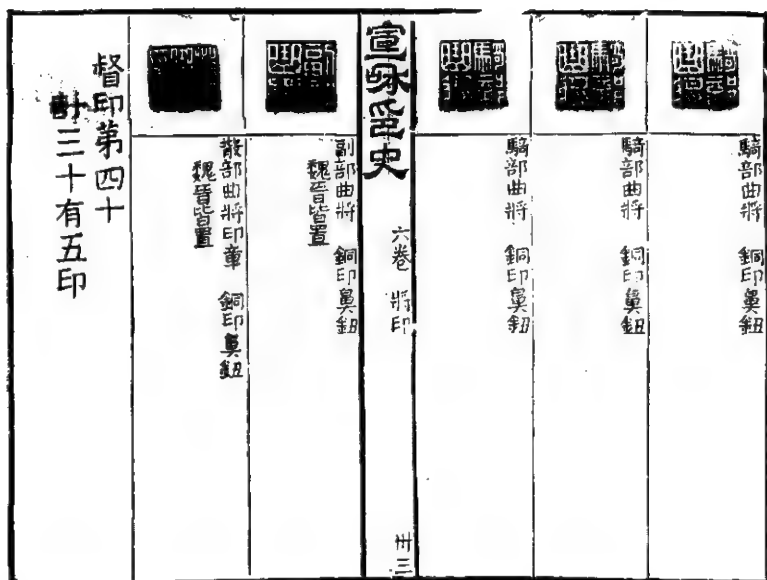 騎部曲將　銅印鼻鈕
騎部曲將　銅印鼻鈕
騎部曲將　銅印鼻鈕
宣和印史　六卷　將印　卅三
副部曲將　銅印鼻鈕
魏晉皆置
散部曲將印章　銅印鼻鈕
魏晉皆置
督印第四十
計三十有五印